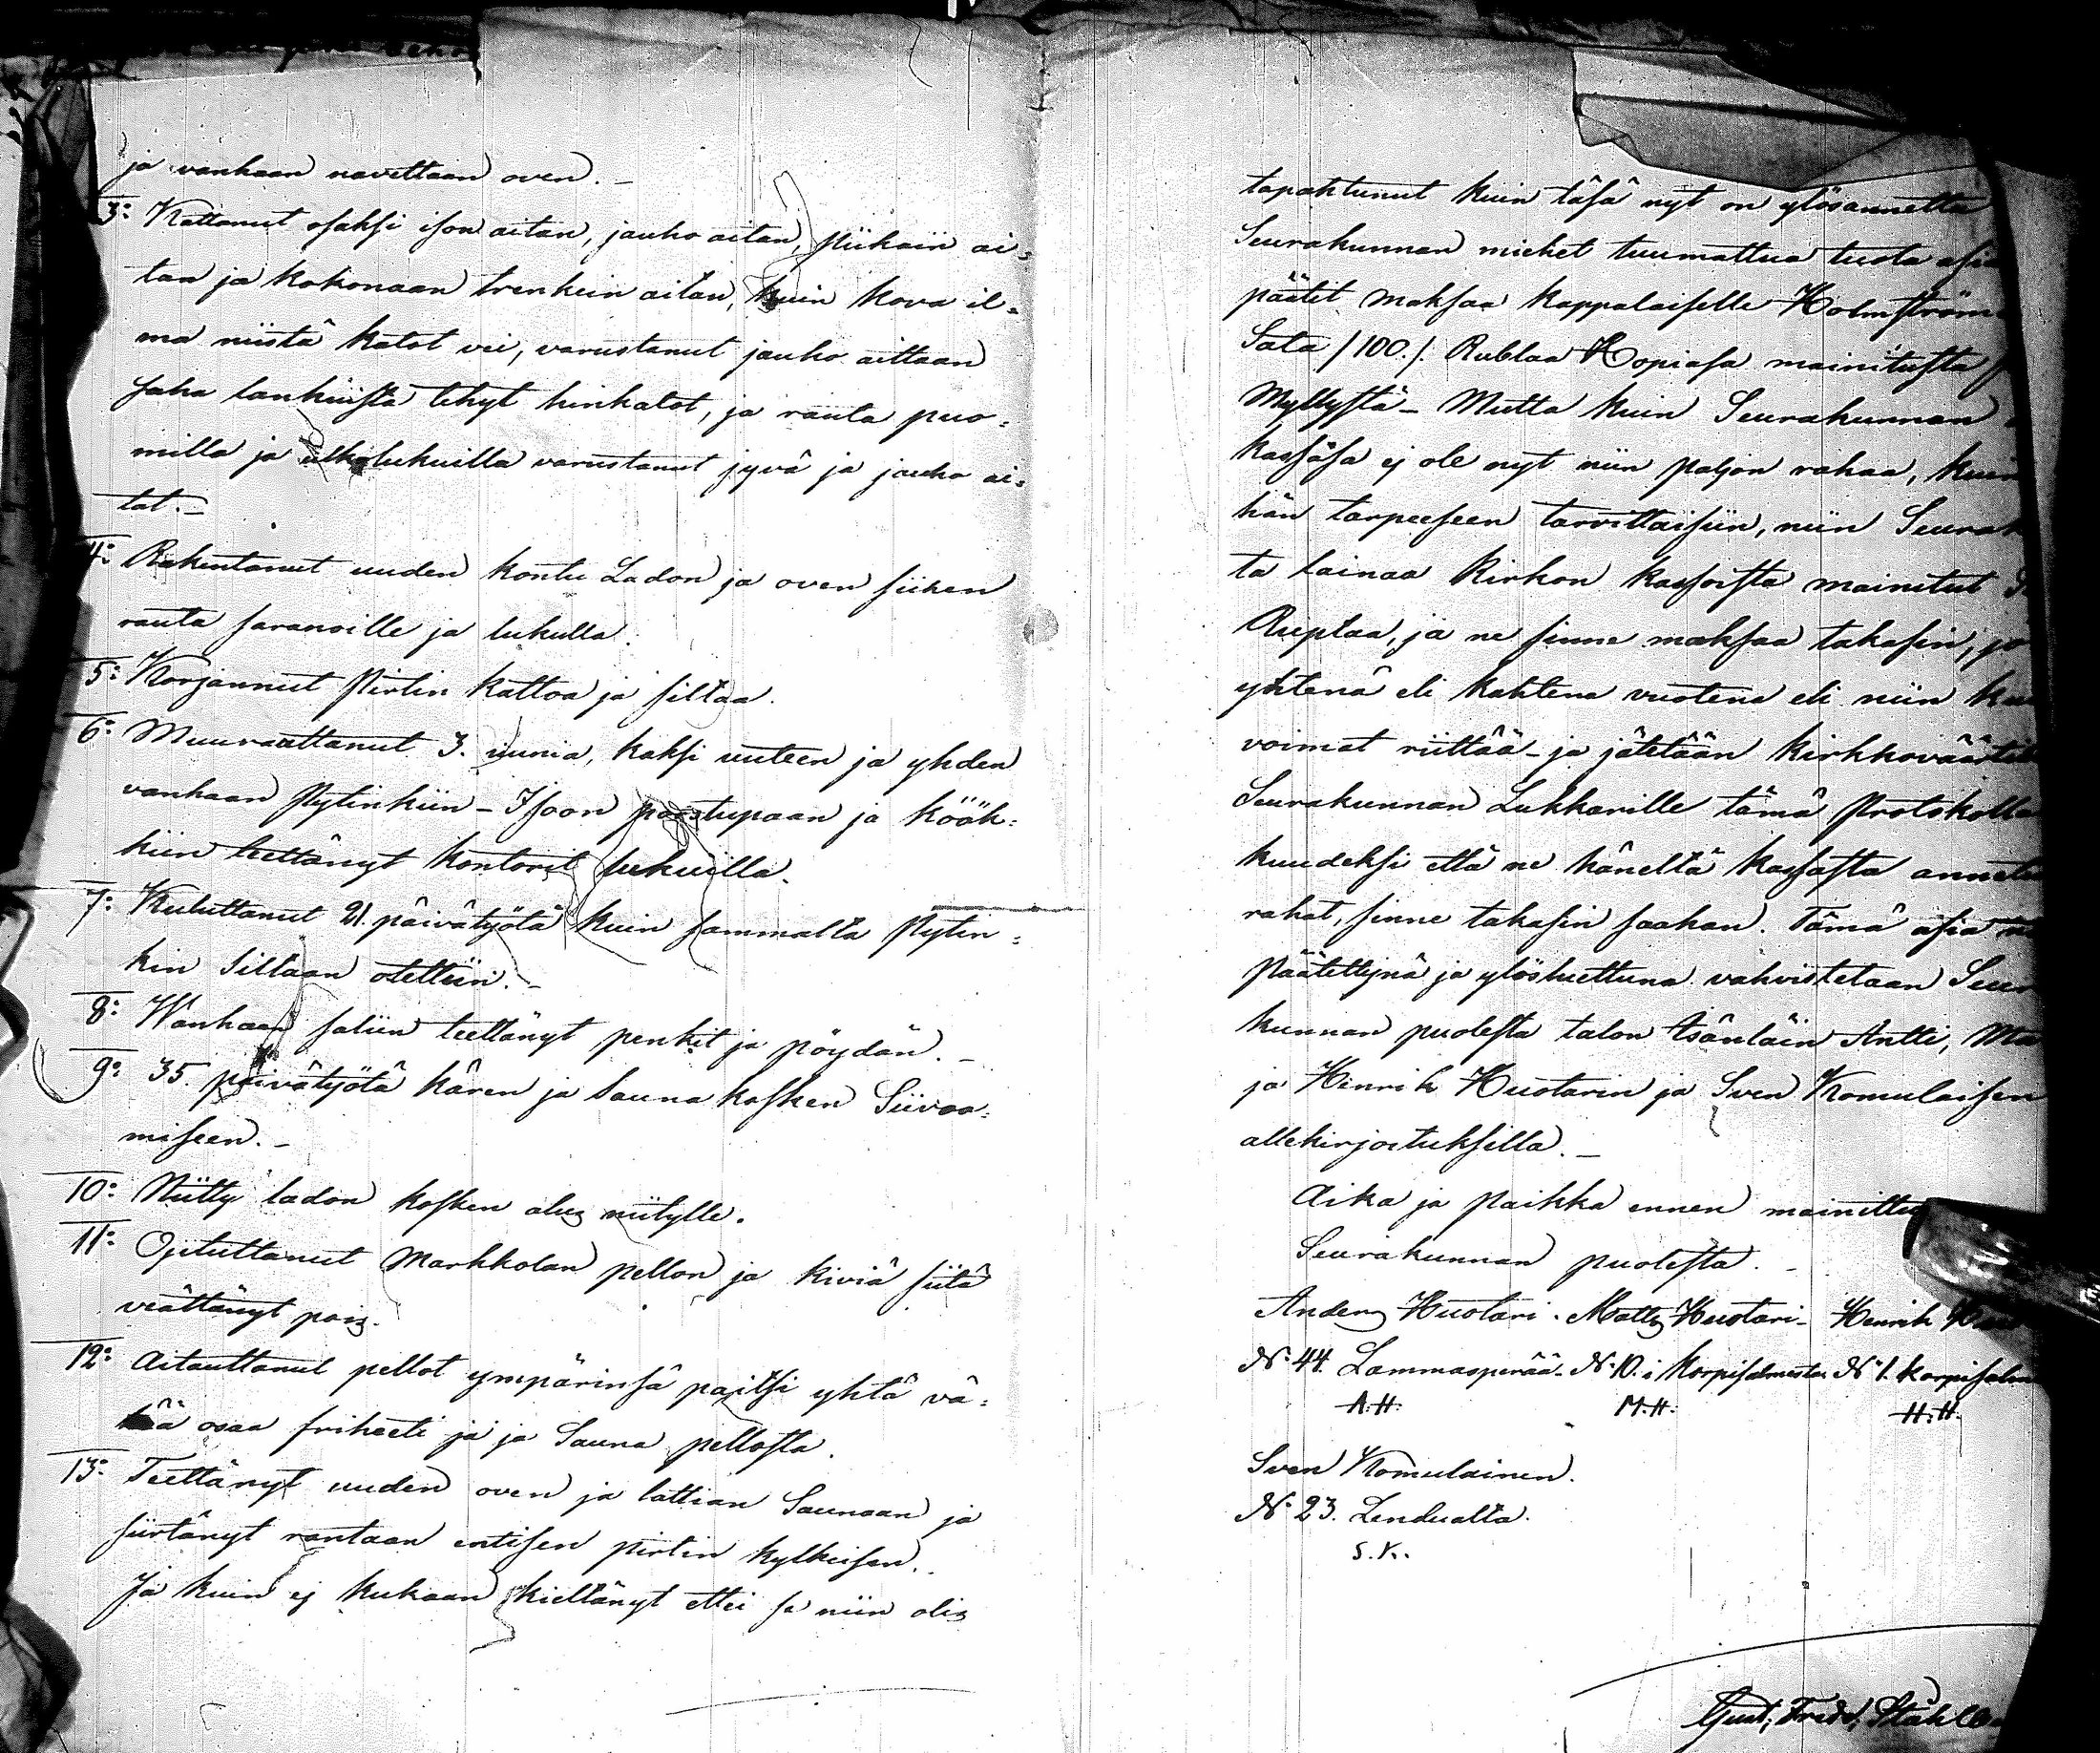 ja vanhaan navettaan oven. –
3:o Kattanut osaksi ison aitan, jauho aitan, piikain ai=
tan ja kokonaan trenkein aitan, kuin kova il=
ma niistä katot vei, varustanut jauho aittaan
saha lankuista tehyt hinkalot, ja rauta puo=
milla ja ulkolukuilla varustanut jyvä ja jauho ai=
tat. –
4:o Rakentanut uuden kontu Ladon ja oven siihen
rauta saranoille ja lukulla.
5:o Korjannut pirtin kattoa ja siltaa.
6:o Muurauttanut 3. uunia, kaksi uuteen ja yhden
vanhaan pytinkiin – Isoon porstupaan ja kööh=
kiin teettänyt kontorit lukuilla.
7:o Kuluttanut 21. päivätyötä kuin sammalta pytin=
kin siltaan otettiin. –
8:o Wanhaan saliin teettänyt penkit ja pöydän. –
9:o 35. päivätyötä kären ja Sauna kosken Siivoa=
miseen. –
10:o Niitty ladon kosken alus niitylle.
11:o Ojituttanut Markkolan pellon ja kiviä siitä
veättänyt pois.
12:o Aitauttanut pellot ympärinsä paitsi yhtä vä=
hää osaa friheeti ja ja Sauna pellosta.
13:o Teettänyt uuden oven ja lattian Saunaan ja
siirtänyt rantaan entisen pirtin kylkeisen.
Ja kuin ej kukaan kieltänyt ettei se niin olis
tapahtunut kuin täsä nyt on ylösannettu
Seurakunnan miehet tuumattua tuota asia
päätit maksaa kappalaiselle Holmström
Sata /100./. Rublaa Hopiasa mainitusta
Myllystä – Mutta kuin Seurakunnan
kassäsa ej ole nyt niin paljon rahaa, kuin
hän tarpeeseen tarvittaisiin, niin Seurak
ta lainaa Kirkon kassoista mainitut
Ruplaa, ja ne sinne maksaa takasin, jo
yhtenä eli kahtena vuotena eli niin
voimat riittää – ja jätetään kirkkovääs
Seurakunnan Lukkarille tämä Protokolla
kuudeksi että ne häneltä kassasta annetu
rahat, sinne takasin saahan. Tämä asia
Päätettynä ja ylösluettuna vahvistetaan Seur
kunnan puolesta talon Isäntäin Antti, Ma
ja Hinrik Huotarin ja Sven Komulaisen
allekirjoituksilla. –
Aika ja paikka ennen mainittu
Seurakunnan puolesta. –
Anders Huotari. Matts Huotari – Henrik
No 44. Lammasperää – No 10. i Korpisalmesta No 1. Korpisalm
A.H. M.H. H.H.
Sven Komulainen.
No 23. Lendualta.
S.K.
Gust. Fredr. Ståhl